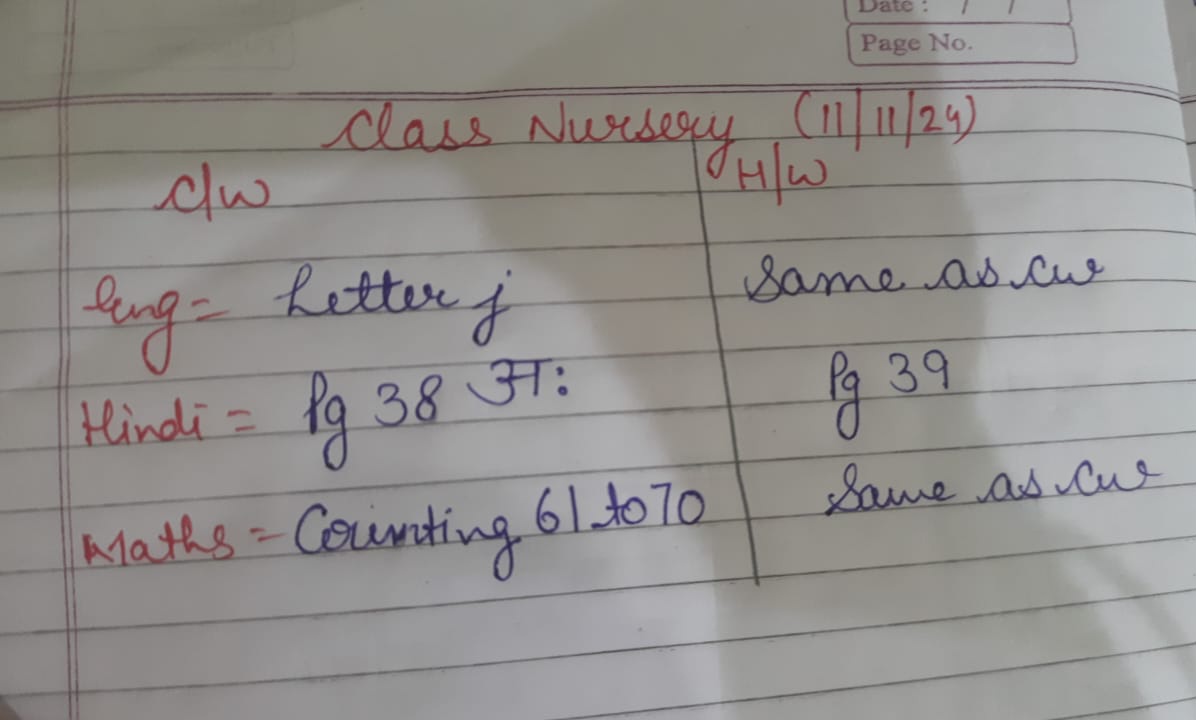 Date : / /
Page No.
Class Nursery (11/11/24)
C/W H/W
Eng = Letter j Same as cw
Hindi = Pg 38 अः Pg 39
Maths = Counting 61 to 70 Same as cw